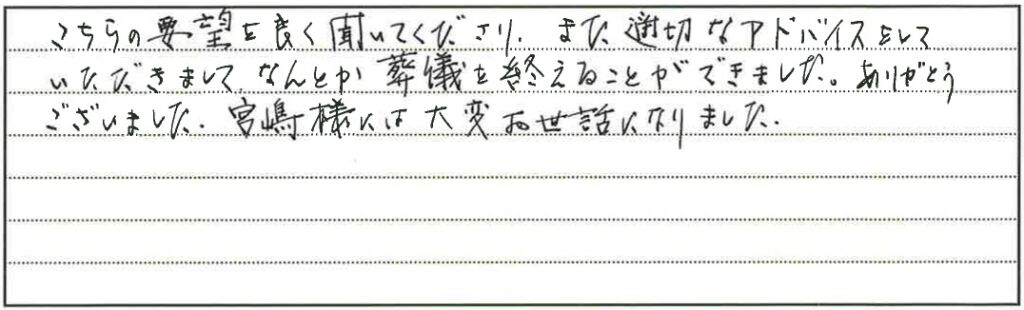 こちらの要望を良く聞いてくださり、また適切なアドバイスをして
いただきまして、なんとか葬儀を終えることができました。ありがとう
ございました。宮嶋様には大変お世話になりました。